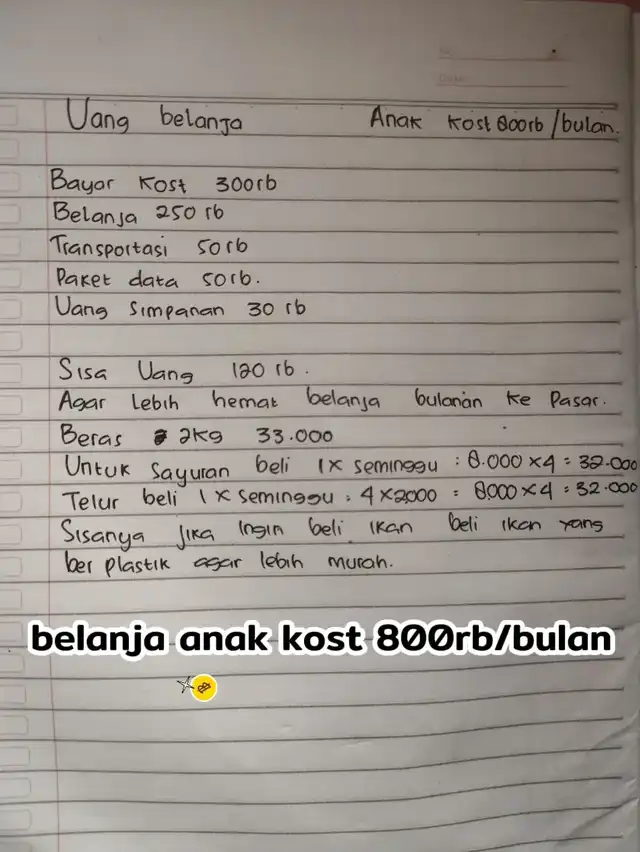 Uang belanja Anak kost 800rb/bulan.
Bayar kost 300rb
Belanja 250 rb
Transportasi 50rb
Paket data 50rb.
Uang Simpanan 30 rb
Sisa Uang 120 rb.
Agar Lebih hemat belanja bulanan ke Pasar.
Beras 2kg 33.000
Untuk Sayuran beli 1x seminggu : 8.000 x 4 = 32.000
Telur beli 1x seminggu : 4x2000 = 8000 x 4 = 32.000
Sisanya jika Ingin beli Ikan beli ikan yang
ber plastik agar lebih murah.
belanja anak kost 800rb/bulan